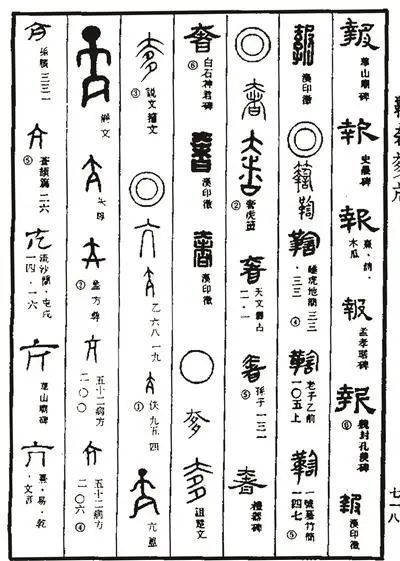 報 華山廟碑 報 史晨碑 報 熹·詩·木瓜 報 孟孝琚碑 報 ⑥魏封孔羨碑 報 漢印徵
報 漢印徵 ◎ 鞫 睡虎地簡三三·三三 ④ 老子乙前一〇五上 一號墓竹簡一四七 ⑤
◎ 奢 奢 奢虎簠 ② 奢 天文雜占二·一 奢 孫子一三一 ⑤ 奢 禮器碑
奢 白石神君碑 ⑥ 奢 漢印徵 奢 漢印徵 ○ 奓 奓 詛楚文
奓 說文籀文 ③ ◎ 亢 亢 乙六八一九 亢 佚九五四 ① 亢 亢簋
亢 爵文 亢 矢尊 亢 盠方尊 ② 亢 五十二病方二〇〇 亢 五十二病方二〇六 ④
亢 孫臏三三一 亢 蒼頡篇二六 ⑤ 亢 流沙簡·屯戍一四·一六 亢 華山廟碑 亢 熹·易·乾·文言
七一八